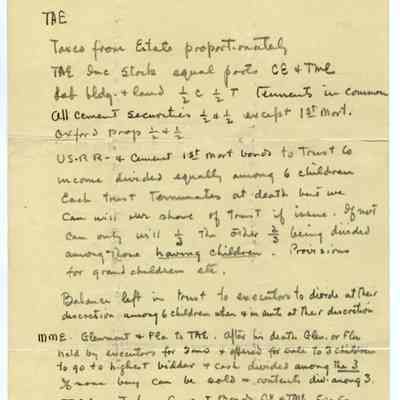 TAE
Taxes from Estate proportionately
TAE Inc Stock equal parts CE & TME
Lab bldg. & land ½ C ½ T Tennents in common
All Cement securities ½ & ½ except 1st Mort.
Oxford prop ½ & ½
US-RR- & Cement 1st Mort bonds to Trust Co
income divided equally among 6 children
Each trust terminates at death but we
can will our share of trust if issue. If not
can only will ⅓ the other ⅔ being divided
among those having children. Provisions
for grand children etc.
Balance left in trust to executors to divide at their
discretion among 6 children when & in amts at their discretion
MME. Glenmont & Fla to TAE. After his death Glen. or Fla
held by executors for 3 mo & offered for sale to 3 children
to go to highest bidder & cash divided among the 3
If none buy can be sold & contents div. among 3.